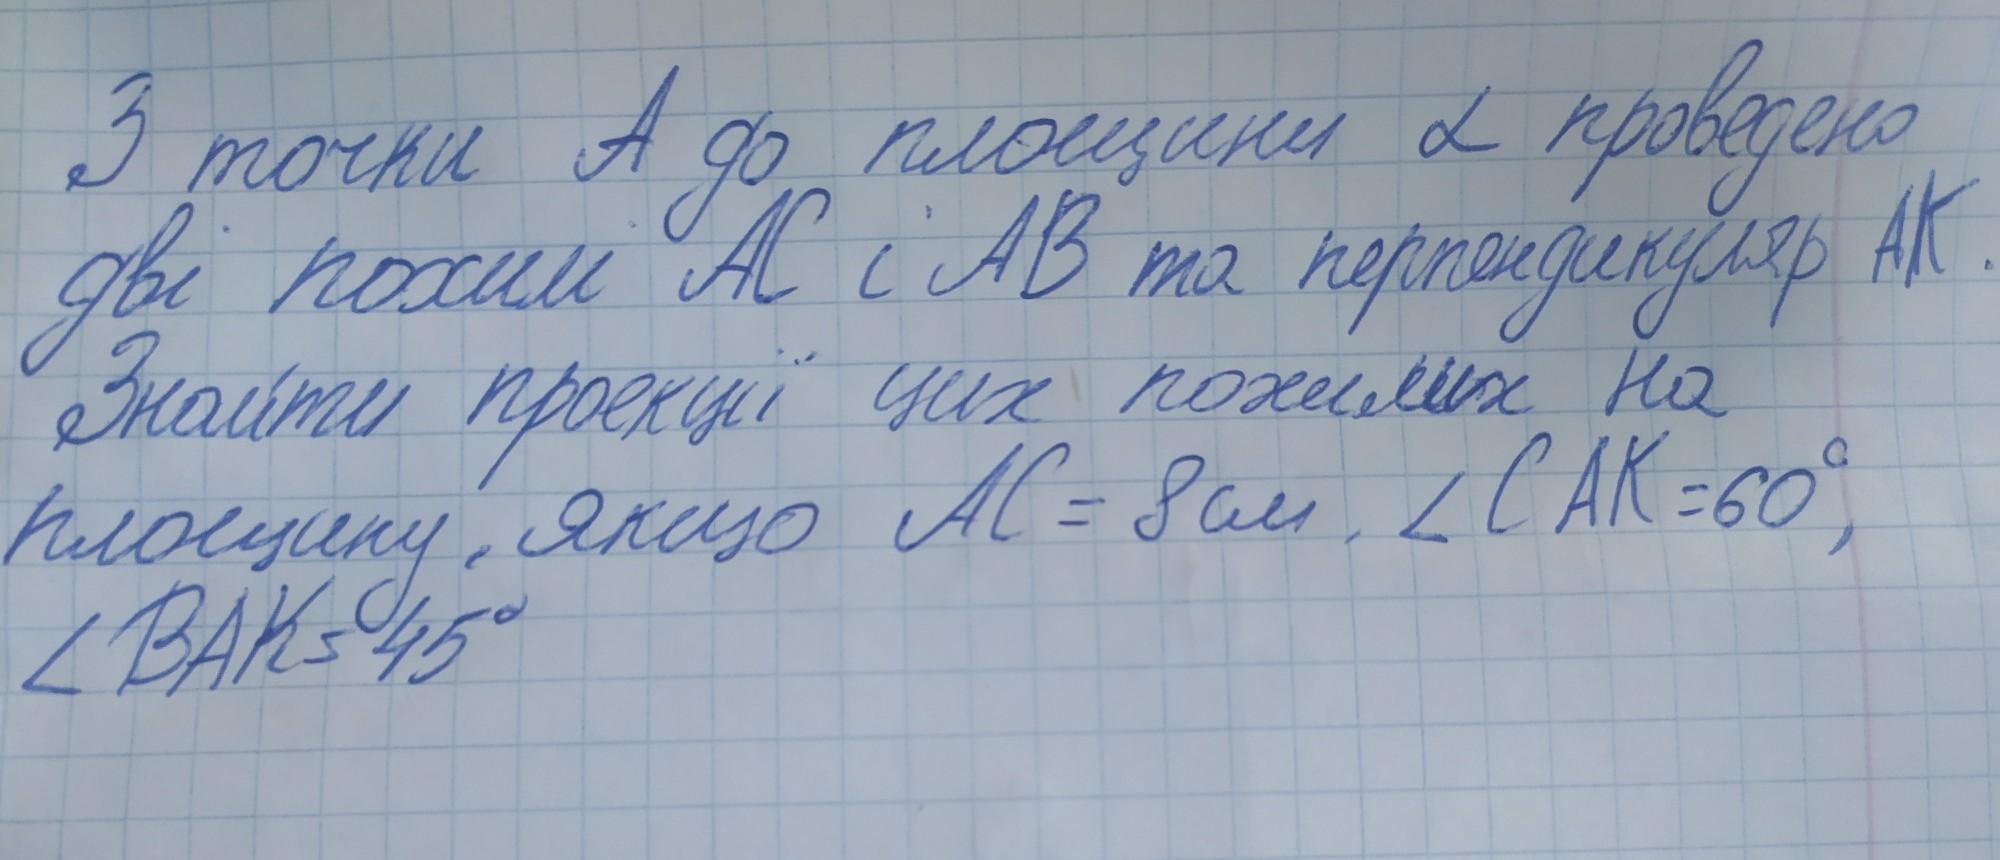 З точки А до площини α проведено
дві похилі АС і АВ та перпендикуляр АК.
Знайти проекції цих похилих на
площину, якщо АС = 8 см, ∠САК = 60°,
∠ВАК = 45°